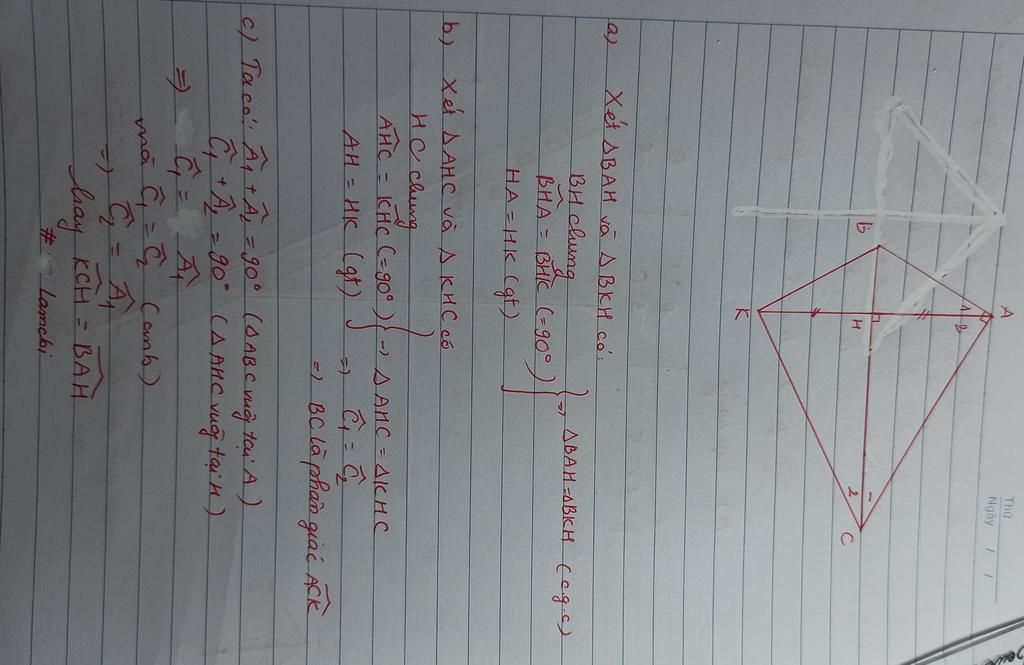 Thứ
Ngày / /
A
1 2
B
H
K
1
2
C
a) Xét ΔBAH và ΔBKH có:
BH chung
BHA = BHK (=90°) } => ΔBAH=ΔBKH (c.g.c)
HA = HK (gt)
b) Xét ΔAHC và ΔKHC có
HC chung
AHC = KHC (=90°) } => ΔAHC = ΔKHC
AH = HK (gt) => C1 = C2
=> BC là phân giác ACK
c) Ta có: A1 + A2 = 90° (ΔABC vuông tại A)
C1 + A2 = 90° (ΔAHC vuông tại H)
=> C1 = A1
mà C1 = C2 (cmb)
=> C2 = A1
hay KCH = BAH
# Lamchi